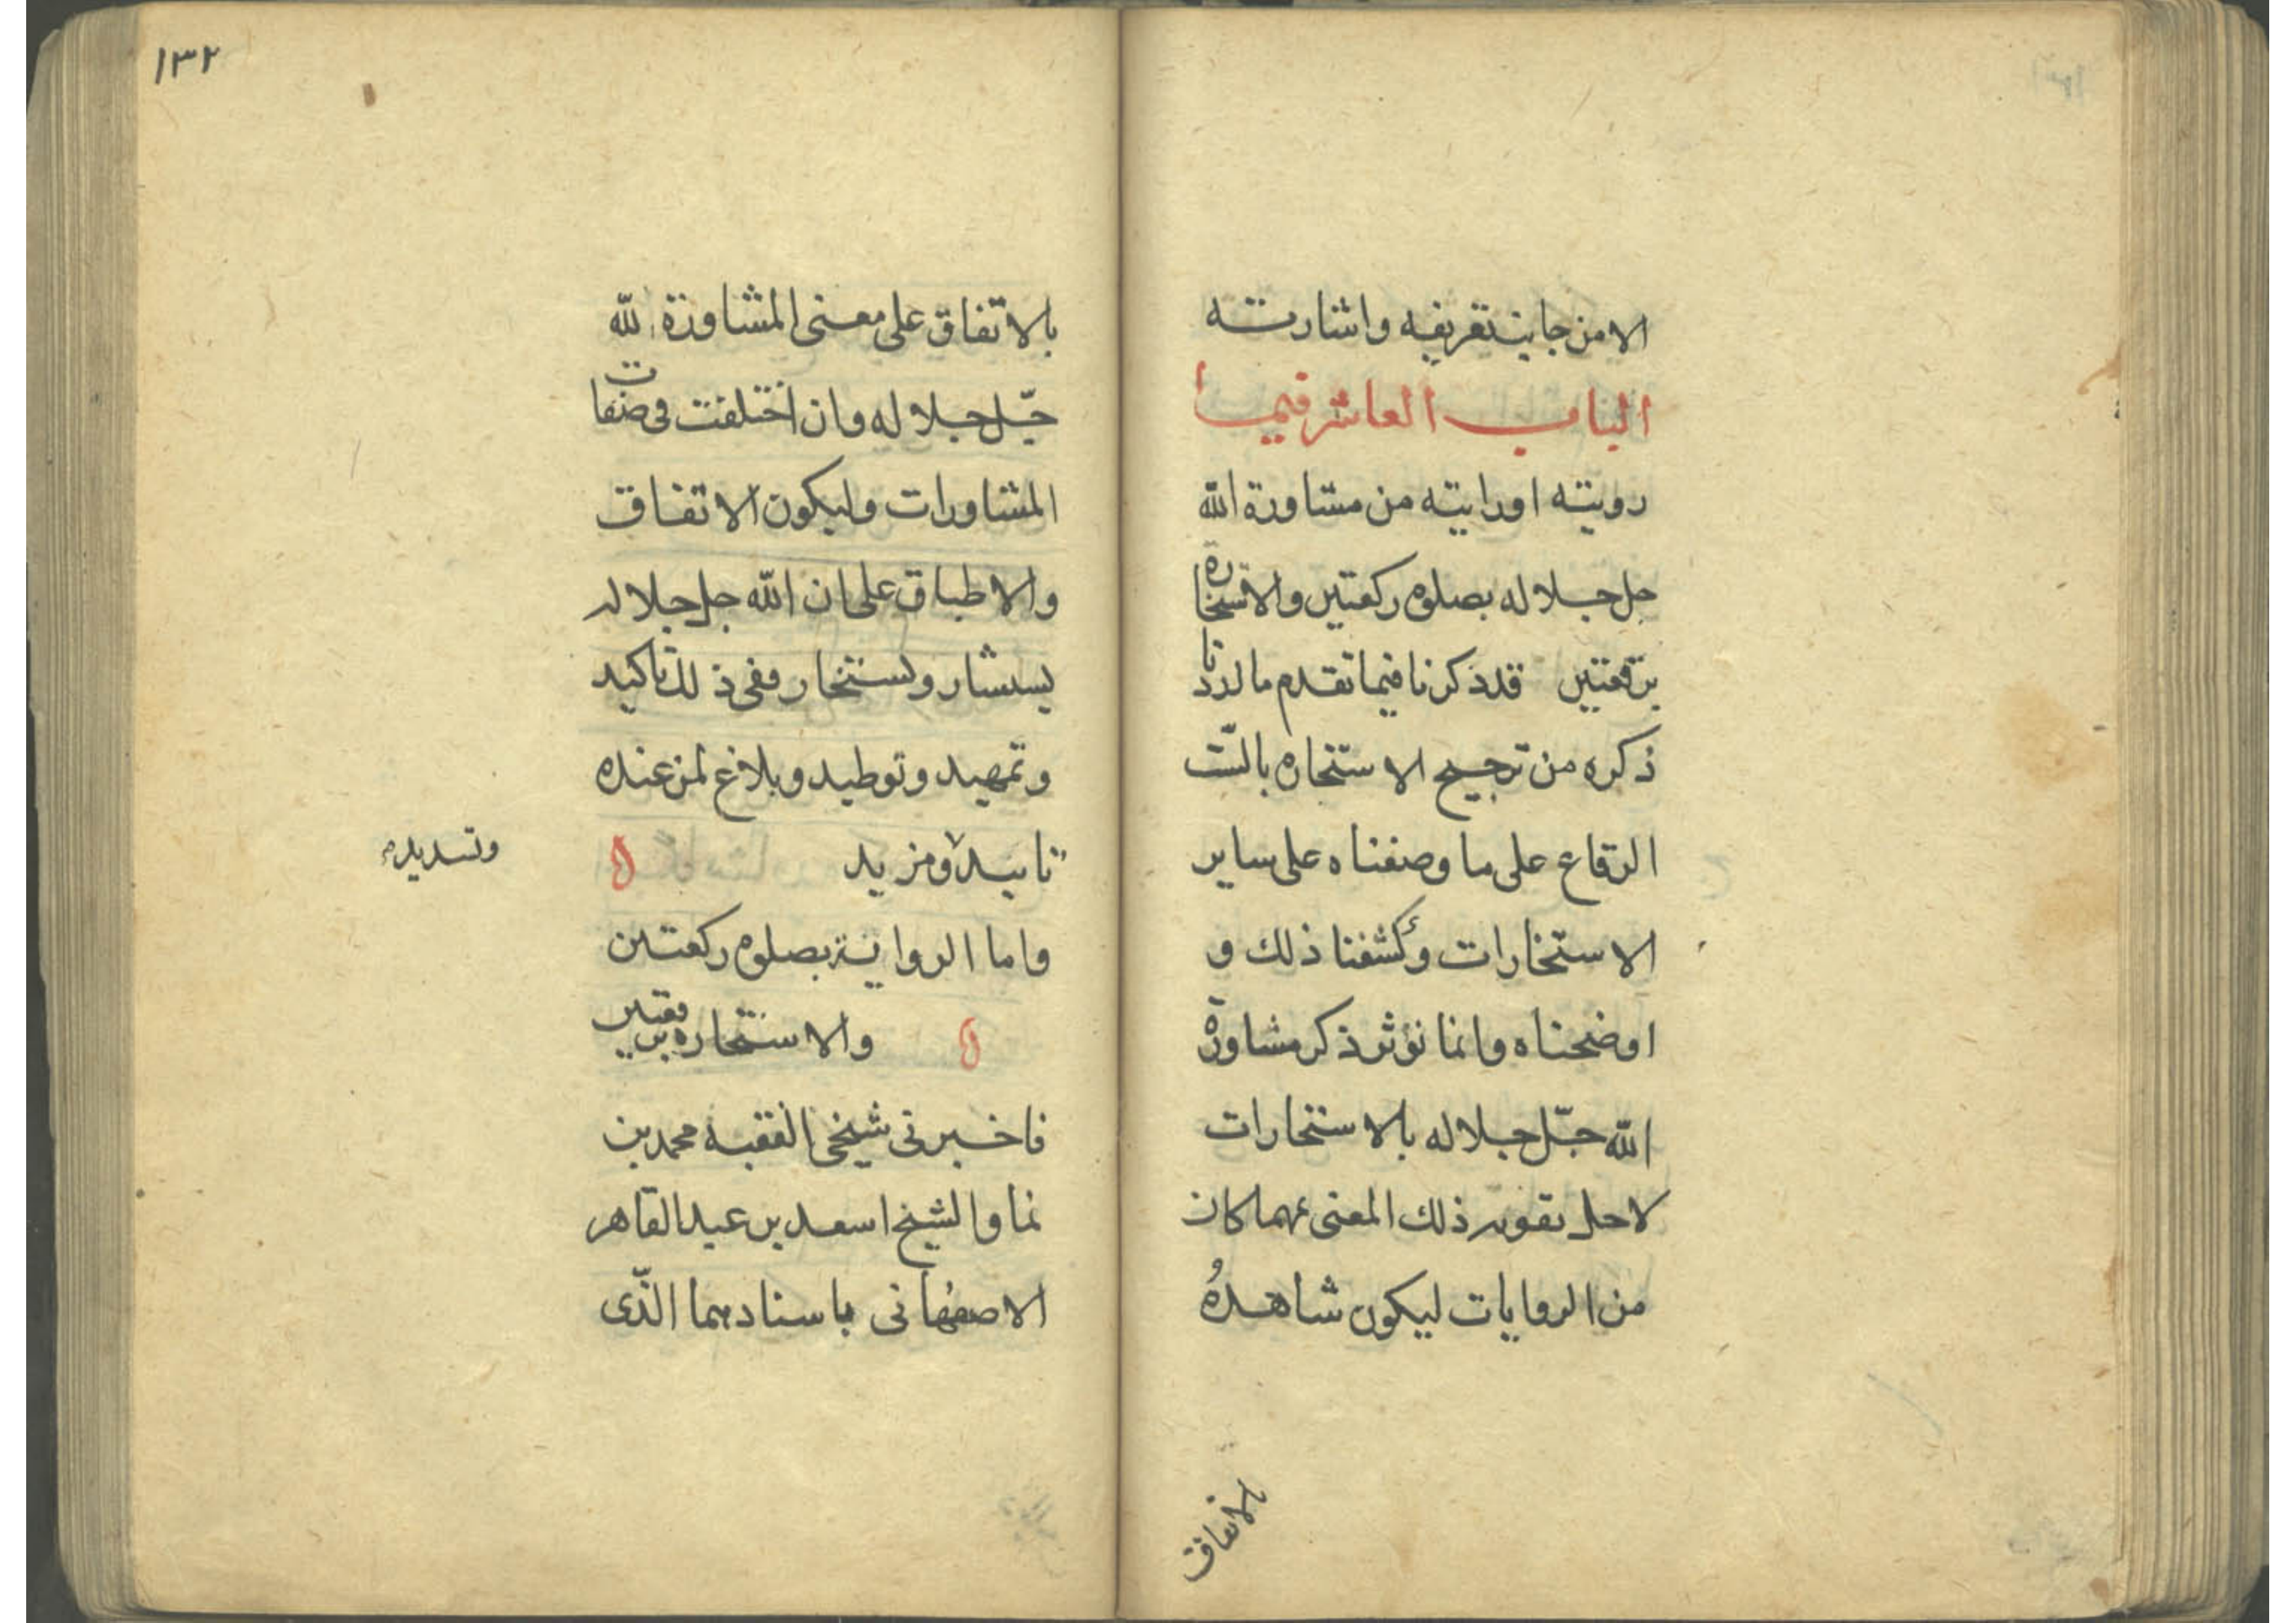 الا من جانب تعريفه واشارته
الباب العاشر فيما
رويته او رايته من مشاورة الله
جل جلاله بصلوة ركعتين والاستخارة
برقعتين قد ذكرنا فيما تقدم ما اردنا
ذكره من ترجيح الاستخاره بالست
الرقاع على ما وصفناه على ساير
الاستخارات وكشفنا ذلك و
اوضحناه وانما نؤثر ذكر مشاورة
الله جلّ جلاله بالاستخارات
لاجل تقويه ذلك المعنى مهما كان
من الروايات ليكون شاهدهُ
بالاتفاق
١٣٢
بالاتفاق على معنى المشاورة لله
جلّ جلاله وان اختلفت في صفات
المشاورات وليكون الاتفاق
والاطباق على ان الله جل جلاله
يستشار ويستخار وفي ذلك تاكيد
وتمهيد وتوطيد وبلاغ لمن عنده
تاييد ومزيد
وتسديد
واما الرواية بصلوة ركعتين
والاستخاره برقعتين
فاخبرني شيخي الفقيه محمد بن
نما والشيخ اسعد بن عبد القاهر
الاصفهاني باسنادهما الذّى